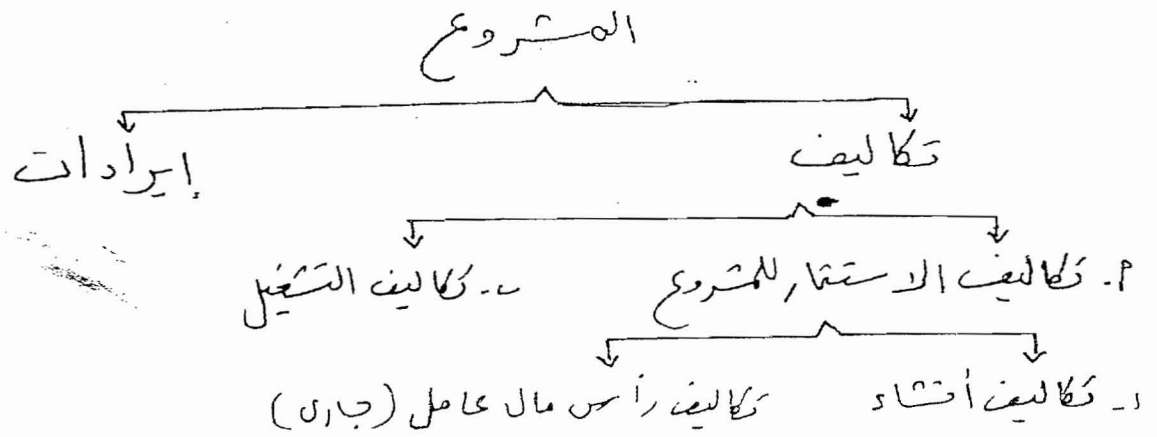 المشروع
تكاليف
إيرادات
أ. تكاليف الاستثمار للمشروع
ب. تكاليف التشغيل
١- تكاليف أنشاء
تكاليف رأس مال عامل (جارى)